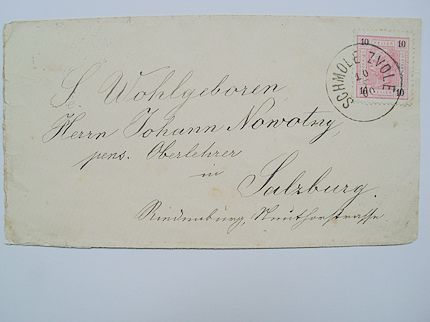 10 10
SCHMOLE-ZVOLE
10
10 10
S. Wohlgeboren
Herrn Johann Nowotny
pens. Oberlehrer
in
Salzburg.
Riedenburg, Neuthorstrasse